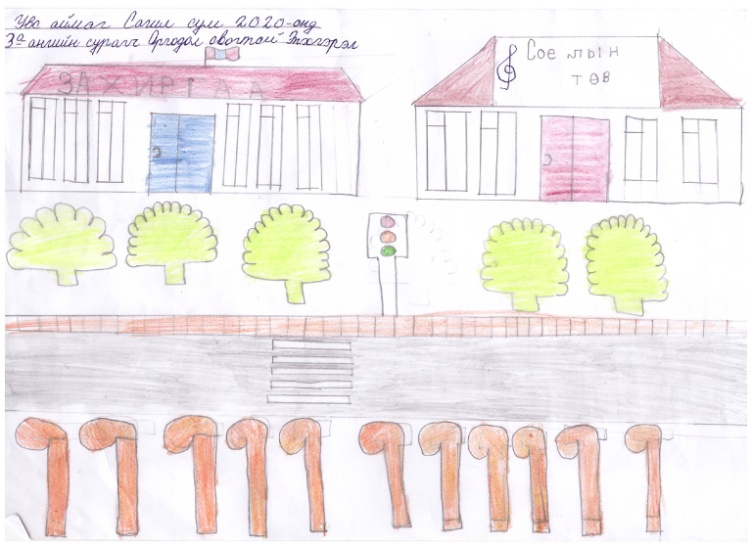 Увс аймаг Сагил сум 2020-онд
3а ангийн сурагч Оргодол овогтой Энхгэрэл
ЗАХИРГАА
Соёлын
төв